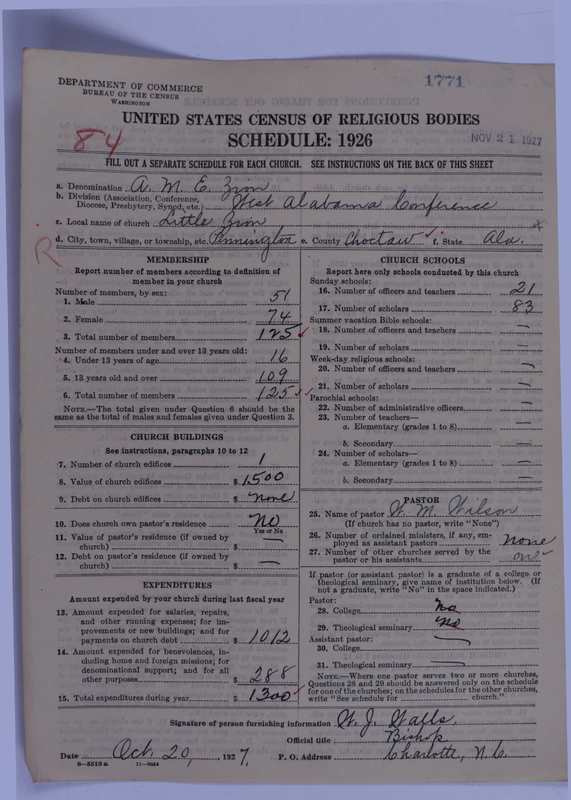 1771
DEPARTMENT OF COMMERCE
BUREAU OF THE CENSUS
WASHINGTON
UNITED STATES CENSUS OF RELIGIOUS BODIES
84
SCHEDULE: 1926
NOV 21 1927
FILL OUT A SEPARATE SCHEDULE FOR EACH CHURCH. SEE INSTRUCTIONS ON THE BACK OF THIS SHEET
a. Denomination A. M. E. Zion
b. Division (Association, Conference, Diocese, Presbytery, Synod, etc.) West Alabama Conference
c. Local name of church Little Zion
R
d. City, town, village, or township, etc. Pennington e. County Choctaw f. State Ala.
MEMBERSHIP
Report number of members according to definition of member in your church
Number of members, by sex:
1. Male 51
2. Female 74
3. Total number of members 125
Number of members under and over 13 years old:
4. Under 13 years of age 16
5. 13 years old and over 109
6. Total number of members 125
NOTE.—The total given under Question 6 should be the same as the total of males and females given under Question 3.
CHURCH BUILDINGS
See instructions, paragraphs 10 to 12
7. Number of church edifices 1
8. Value of church edifices $ 1500
9. Debt on church edifices $ none
10. Does church own pastor's residence No
Yes or No
11. Value of pastor's residence (if owned by church) $ —
12. Debt on pastor's residence (if owned by church) $ —
EXPENDITURES
Amount expended by your church during last fiscal year
13. Amount expended for salaries, repairs, and other running expenses; for improvements or new buildings; and for payments on church debt $ 1012
14. Amount expended for benevolences, including home and foreign missions; for denominational support; and for all other purposes $ 288
15. Total expenditures during year $ 1300
CHURCH SCHOOLS
Report here only schools conducted by this church
Sunday schools:
16. Number of officers and teachers 21
17. Number of scholars 83
Summer vacation Bible schools:
18. Number of officers and teachers —
19. Number of scholars —
Week-day religious schools:
20. Number of officers and teachers —
21. Number of scholars —
Parochial schools:
22. Number of administrative officers —
23. Number of teachers—
a. Elementary (grades 1 to 8) —
b. Secondary —
24. Number of scholars—
a. Elementary (grades 1 to 8) —
b. Secondary —
PASTOR
25. Name of pastor W. M. Wilson
(If church has no pastor, write "None")
26. Number of ordained ministers, if any, employed as assistant pastors none
27. Number of other churches served by the pastor or his assistants one
If pastor (or assistant pastor) is a graduate of a college or theological seminary, give name of institution below. (If not a graduate, write "No" in the space indicated.)
Pastor:
28. College No
29. Theological seminary No
Assistant pastor:
30. College —
31. Theological seminary —
NOTE.—Where one pastor serves two or more churches, Questions 28 and 29 should be answered only on the schedule for one of the churches; on the schedules for the other churches, write "See schedule for church."
Signature of person furnishing information W. J. Walls
Official title Bishop
Date Oct. 20, 1927. P. O. Address Charlotte, N. C.
8—5513a 11—9034